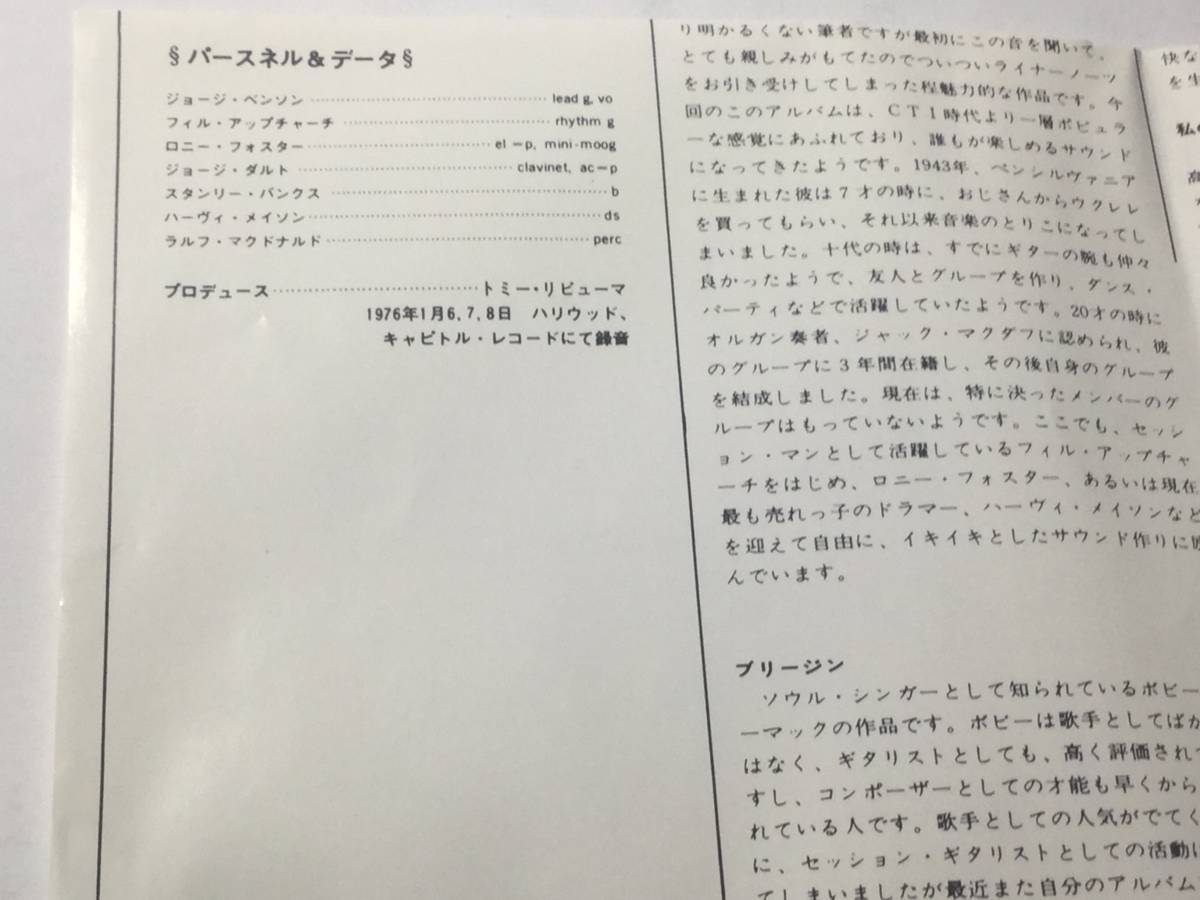 §パースネル＆データ§
ジョージ・ベンソン……………………lead g, vo
フィル・アップチャーチ……………………rhythm g
ロニー・フォスター……………………el－p, mini-moog
ジョージ・ダルト……………………clavinet, ac－p
スタンリー・バンクス……………………b
ハーヴィ・メイソン……………………ds
ラルフ・マクドナルド……………………perc
プロデュース……………………トミー・リピューマ
1976年1月6,7,8日　ハリウッド、
キャピトル・レコードにて録音
り明かるくない筆者ですが最初にこの音を聞いて、
とても親しみがもてたのでついついライナーノーツ
をお引き受けしてしまった程魅力的な作品です。今
回のこのアルバムは、CTI時代より一層ポピュラ
ーな感覚にあふれており、誰もが楽しめるサウンド
になってきたようです。1943年、ペンシルヴァニア
に生まれた彼は7才の時に、おじさんからウクレレ
を買ってもらい、それ以来音楽のとりこになってし
まいました。十代の時は、すでにギターの腕も仲々
良かったようで、友人とグループを作り、ダンス・
パーティなどで活躍していたようです。20才の時に
オルガン奏者、ジャック・マクダフに認められ、彼
のグループに3年間在籍し、その後自身のグループ
を結成しました。現在は、特に決ったメンバーのグ
ループはもっていないようです。ここでも、セッシ
ョン・マンとして活躍しているフィル・アップチャ
ーチをはじめ、ロニー・フォスター、あるいは現在
最も売れっ子のドラマー、ハーヴィ・メイソンなど
を迎えて自由に、イキイキとしたサウンド作りに
んでいます。
ブリージン
ソウル・シンガーとして知られているボビー
ーマックの作品です。ボビーは歌手としてばか
はなく、ギタリストとしても、高く評価されて
すし、コンポーザーとしての才能も早くから
れている人です。歌手としての人気がでてく
に、セッション・ギタリストとしての活動は
てしまいましたが最近また自分のアルバム
快な
を生
私の